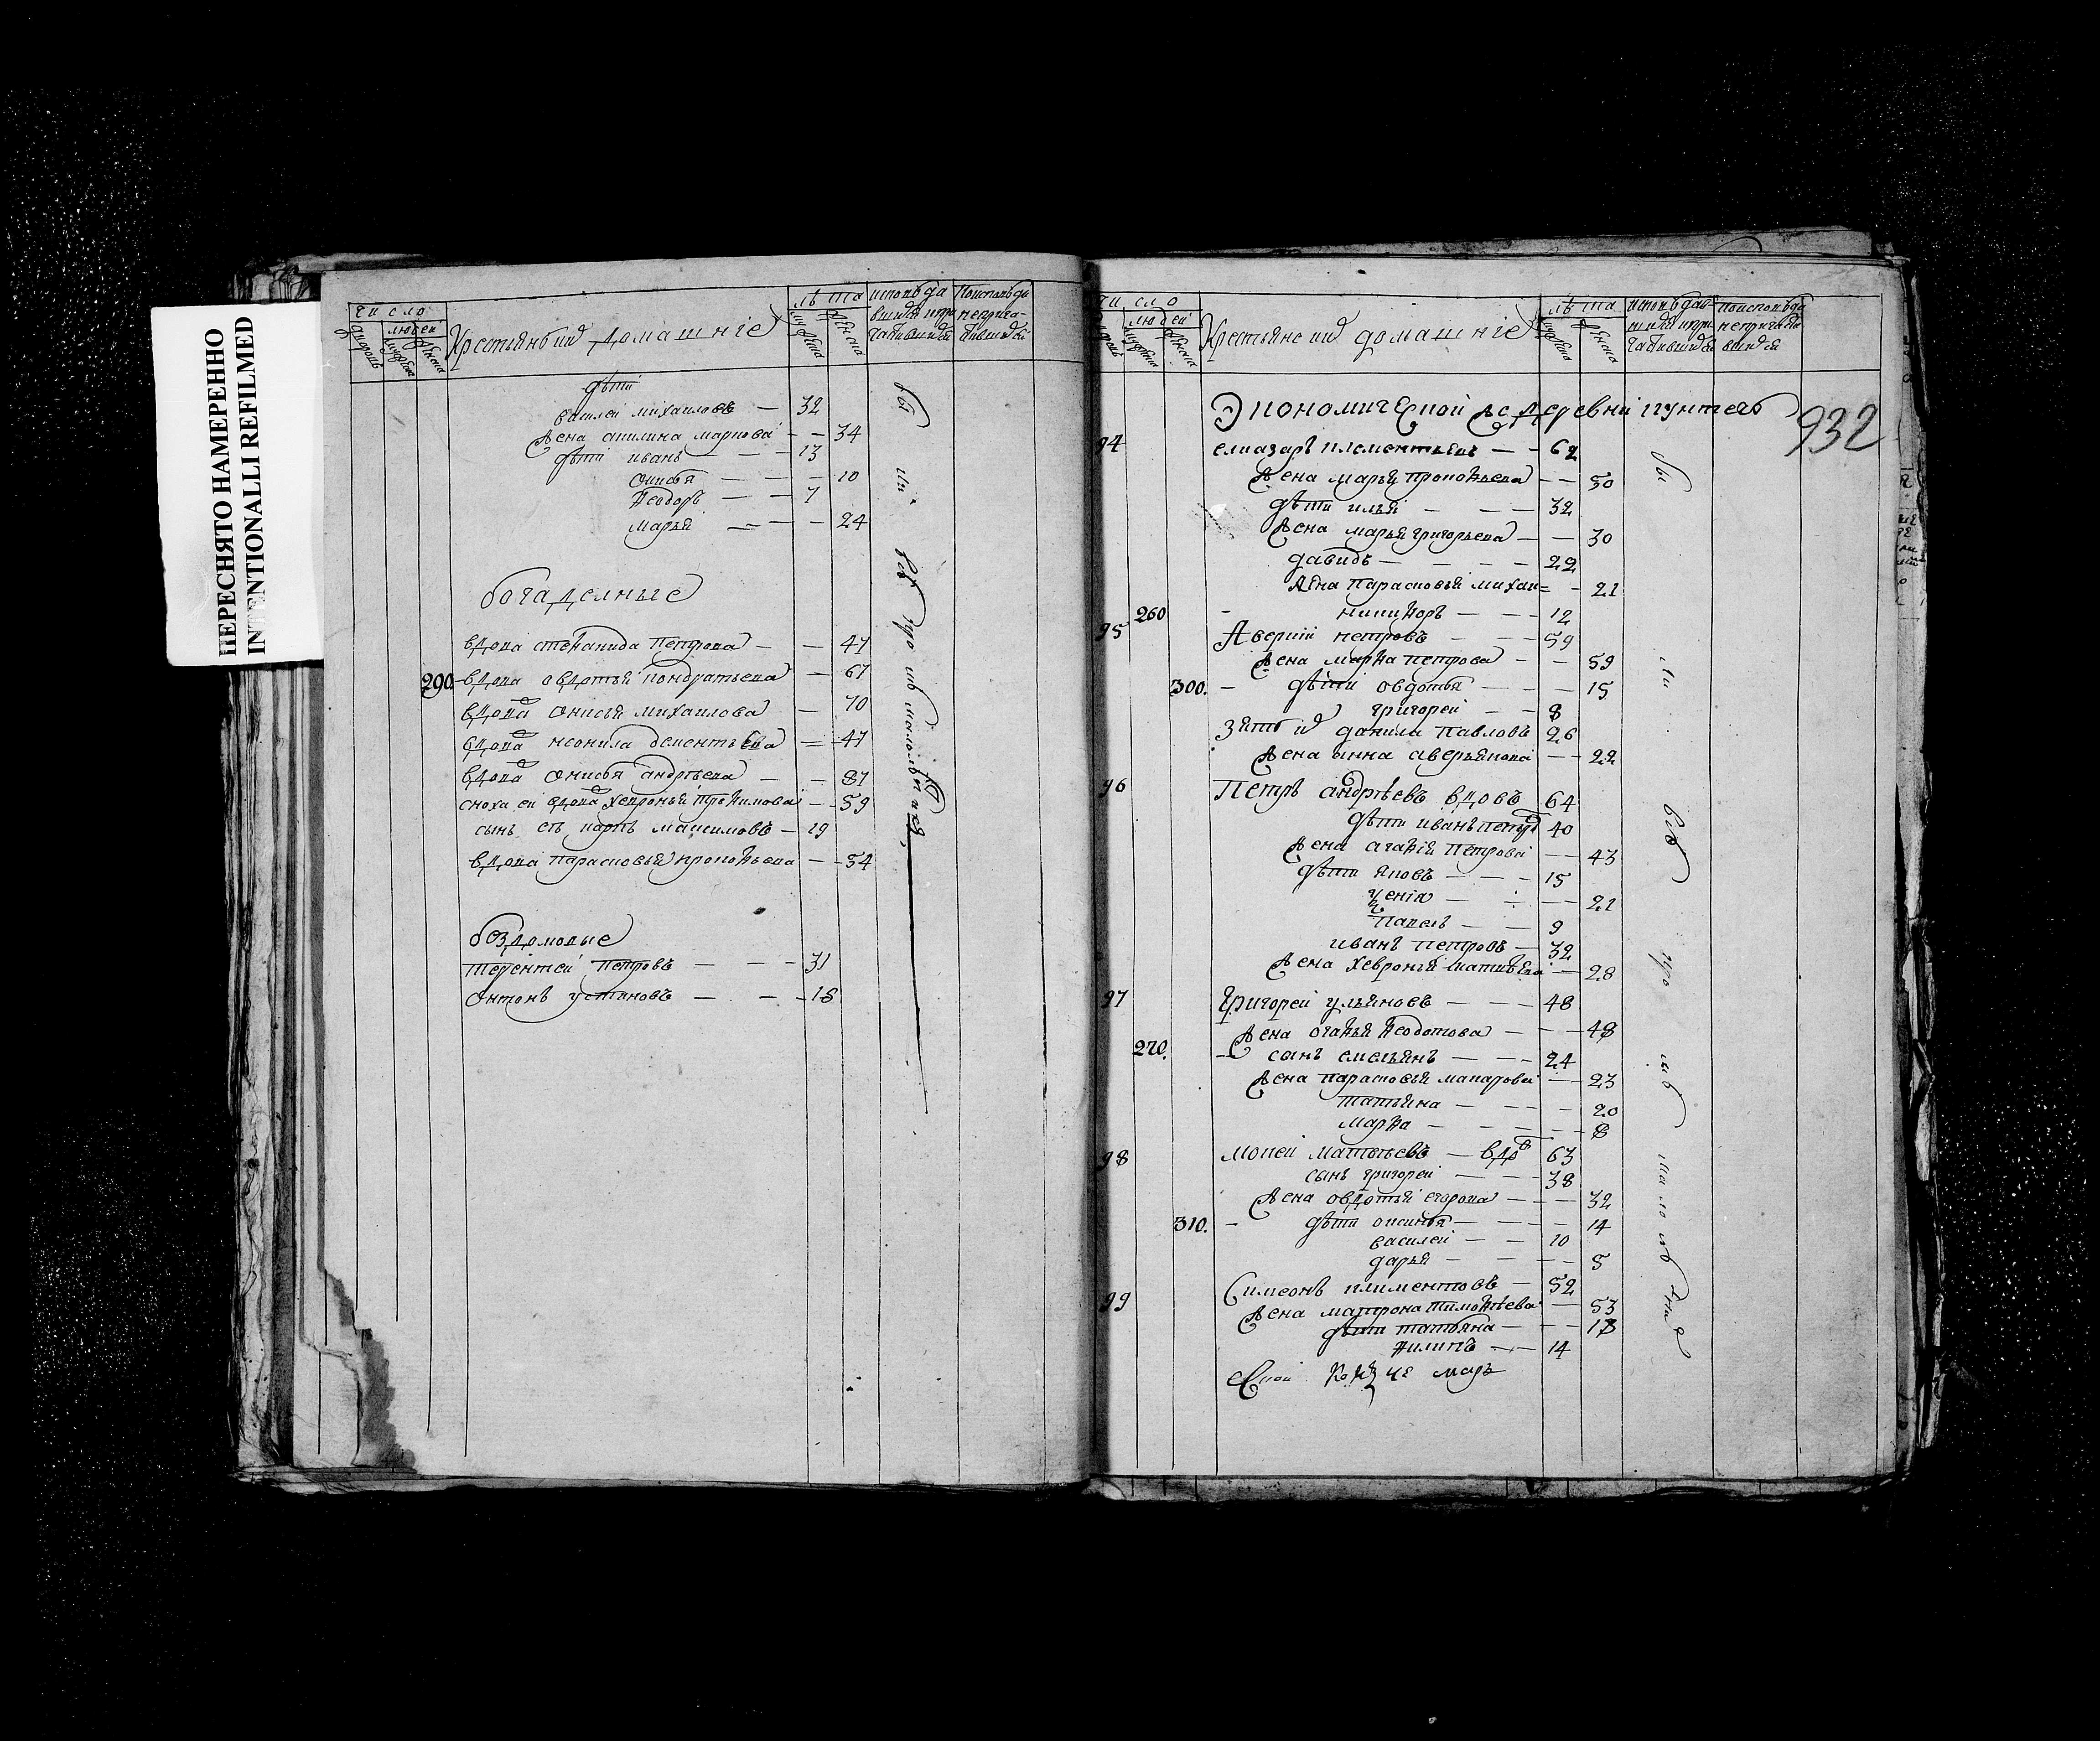 ПЕРЕСНЯТО НАМЕРЕННО
INTENTIONALLI REFILMED
число
лѣта
людей
дворовъ
мужеска
женска
Крестьянскии домашніе
дѣти
василеи михаиловъ — 32
жена акилина маркова — — 34
дѣти иванъ — — — 13
ониѳья — — — — 10
ѳеодоръ — — 7
марья — — — 24
богаделныге
вдова стеѳанида Петрова — — 47
290. вдова овдотья кондратьева — 67
вдова онисья михаилова — 70
вдова неонила дементьева — 47
вдова онисья андрѣева — — 87
сноха еи вдова хевронья троѳимова — 59
сынъ еѣ карпъ максимовъ — 19
вдова парасковья прокоѳьева — 54
бездомовые
терентеи петровъ — — — 31
онтонъ устиновъ — — 18
число
лѣта
людей
Крестьянскии домашніе
Экономической деревни
932
94 елиазаръ клементьевъ — — 62
жена марья прокоѳьева — — 50
дѣти илья — — — 32
жена марья григорьева — — 30
давидъ — — — — 22
жена парасковья михаи= — 21
260 — никиѳоръ — — — 12
95 Аверкіи петровъ — — 59
жена марѳа петрова — — 59
300. — дѣти овдотья — — — 15
григореи — — 8
зять данила павловъ 26
жена анна аверьянова — — 22
96 Петръ андрѣевъ вдовъ 64
дѣти иванъ петр 40
жена агаѳія петрова — — 43
дѣти яковъ — — — 15
— — — 21
павелъ — — 9
иванъ петровъ — 32
жена хевронья матвѣева — 28
97 Григореи ульяновъ — — — 48
жена огаѳья ѳеодотова — — — 48
270. — сынъ емельянъ — — — 24
жена парасковья макарова — — 23
татьяна — — — — 20
марѳа — — — — 8
98 мокеи матвѣевъ — вдо 63
сынъ григореи — — — 38
жена овдотья егорова — — — 32
310. — дѣти оксинья — — — — 14
василеи — — — 10
дарья — — — — 5
99 Симеонъ климентовъ — 52
жена матрона тимоѳѣева — 53
дѣти татьяна — — — 18
ѳилипъ — — 14